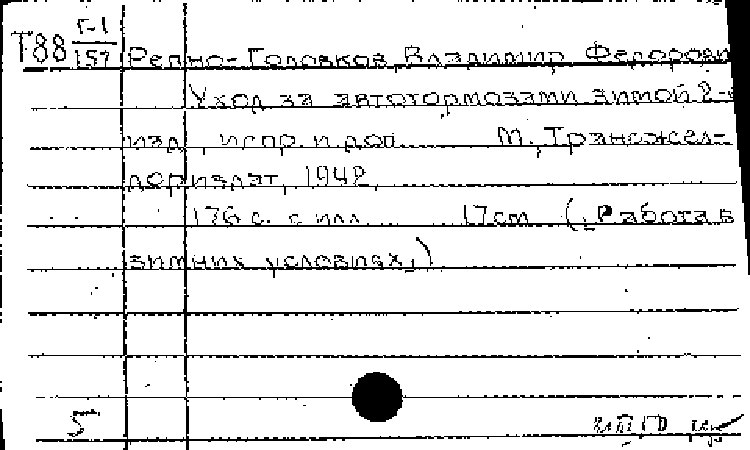 Т88 Г-1
157
Репно-Головков, Владимир Федорови
Уход за автотормозами зимой 2-
изд., испр. и доп. М., Трансжел-
дориздат, 1942.
176 с. с илл. 17 см (Работа в
зимних условиях.)
5